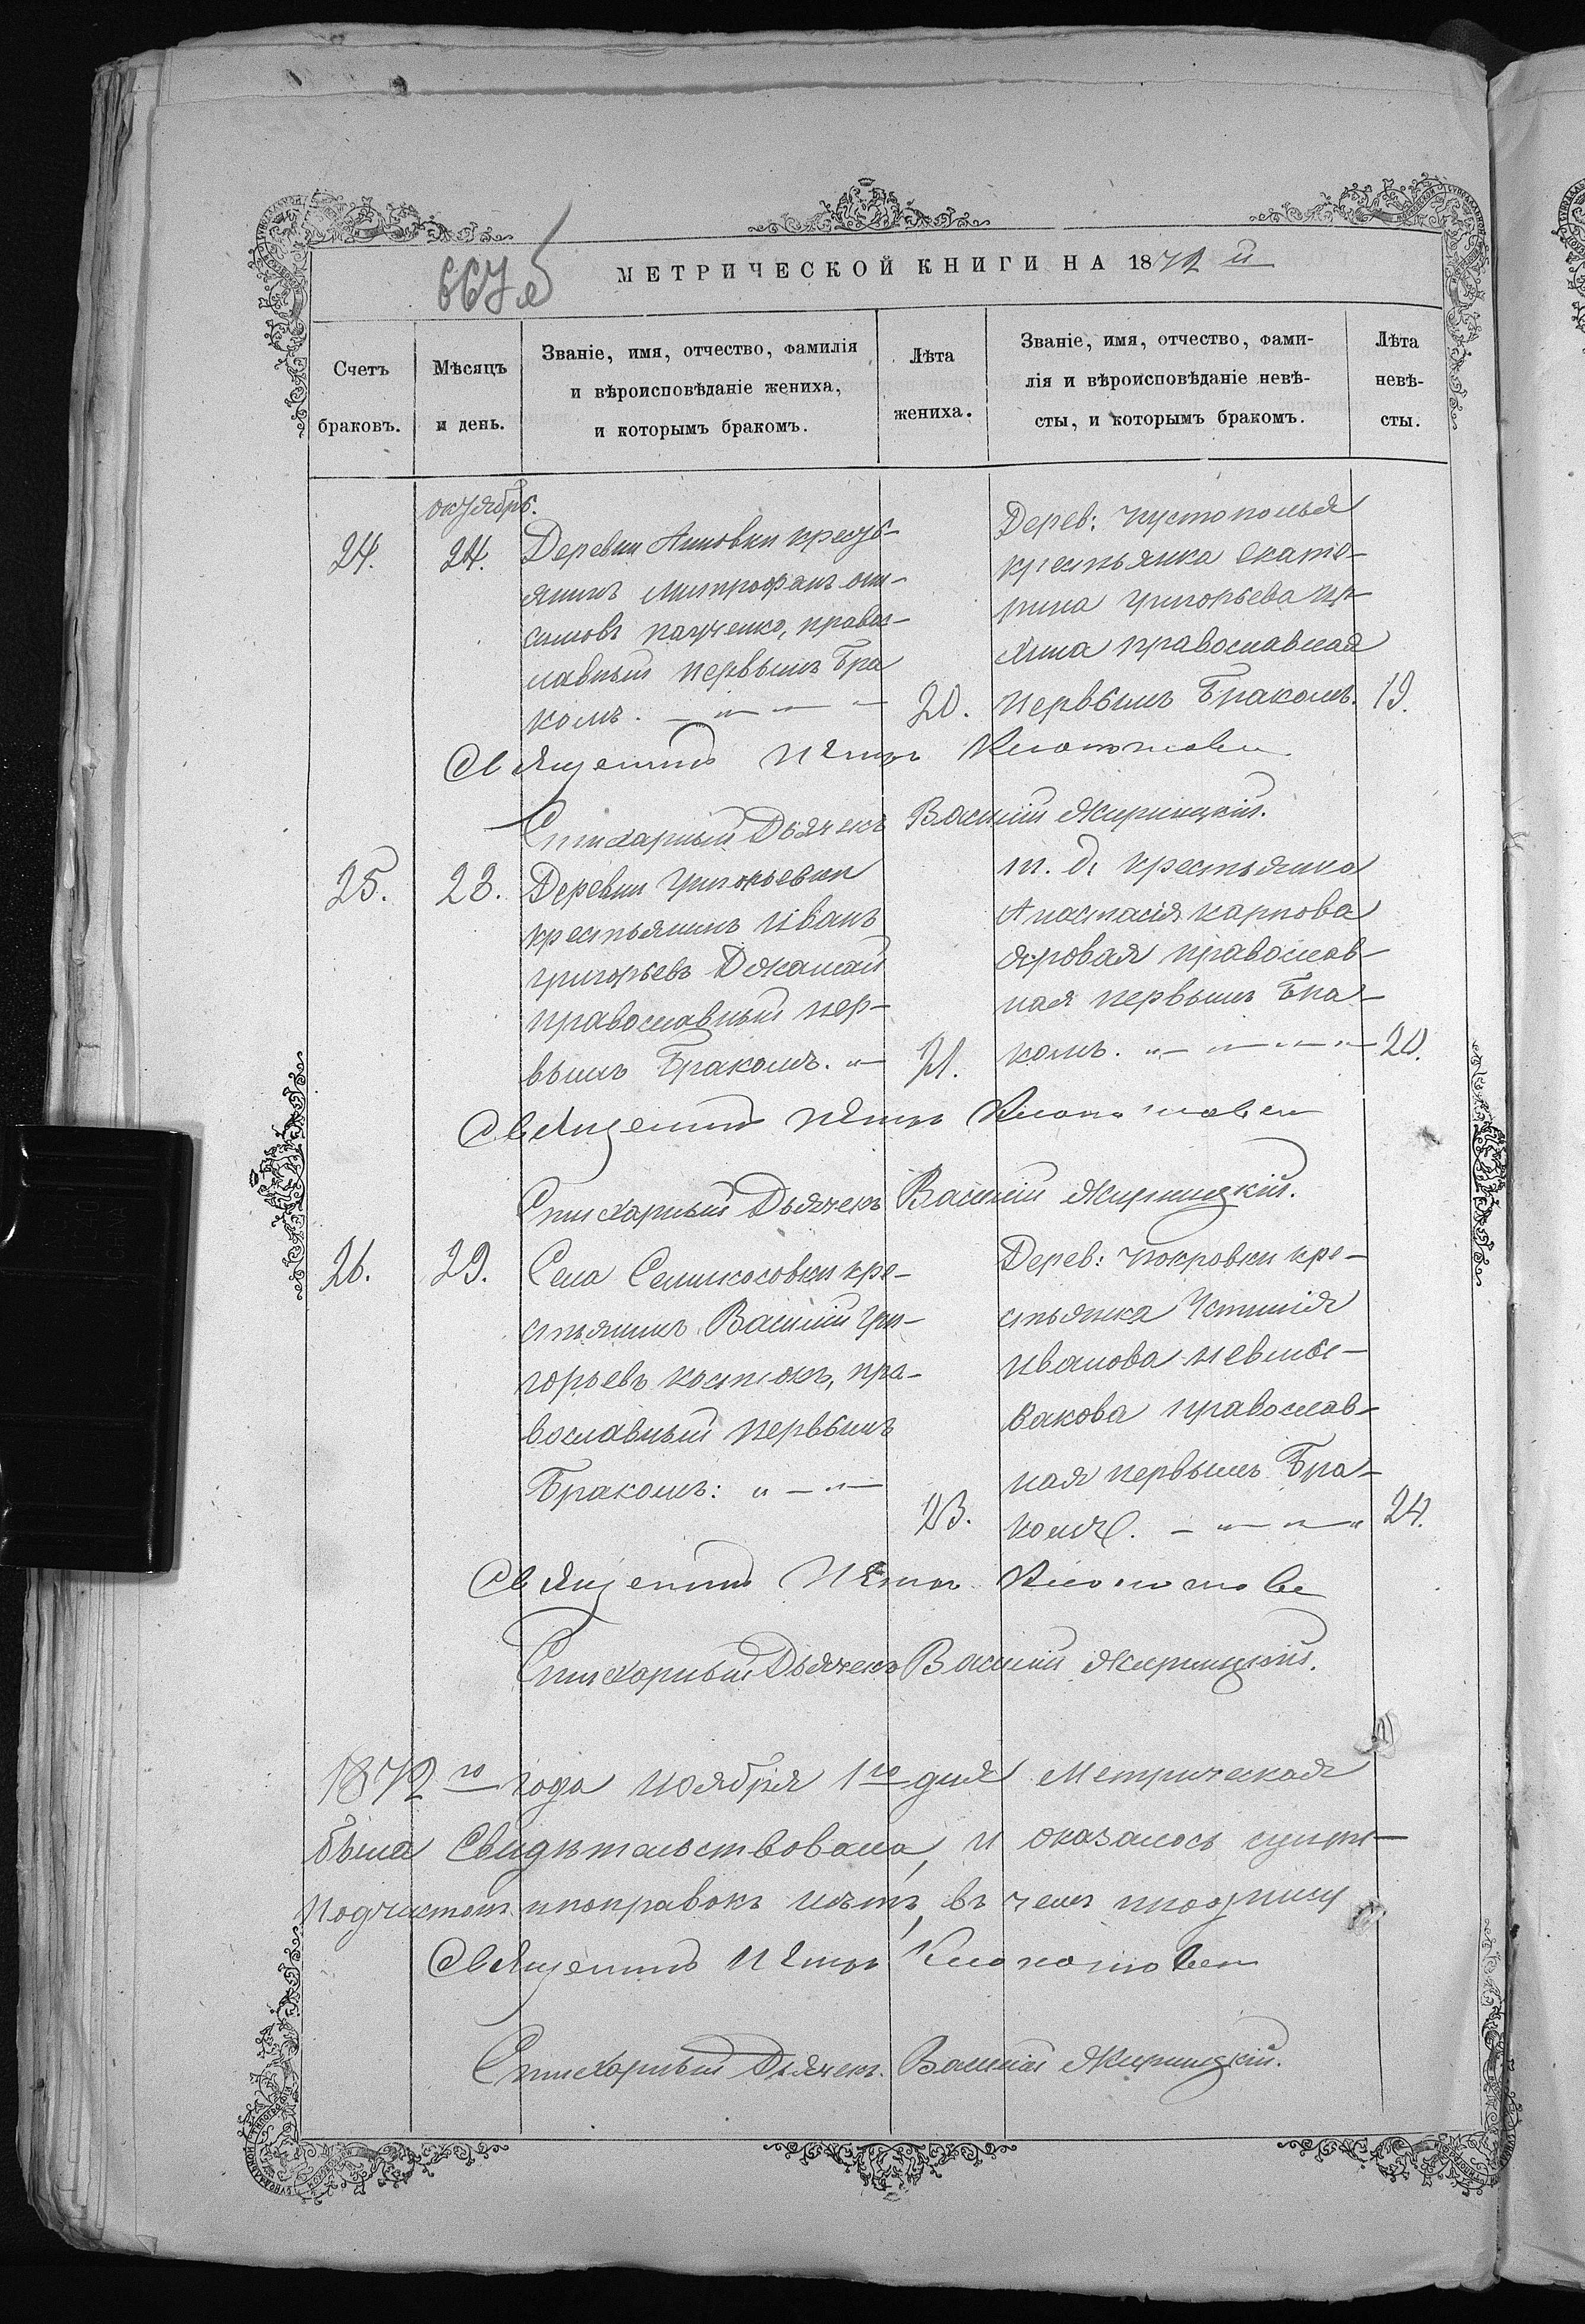 667
МЕТРИЧЕСКОЙ КНИГИ НА 1872 й
Счетъ браковъ.
Мѣсяцъ и день.
Званіе, имя, отчество, фамилія
и вѣроисповѣданіе жениха,
и которымъ бракомъ.
Лѣта
жениха.
Званіе, имя, отчество, фами-
лія и вѣроисповѣданіе невѣ-
сты, и которымъ бракомъ.
Лѣта
невѣ-
сты.
октябрь.
24. 24.
Деревни Анновки кресть-
янинъ Митрофанъ они-
симовъ правос-
лавный первымъ Бра
комъ. 20.
Дерев: Пустополья
крестьянка екате-
рина григорьева
православная
первымъ Бракомъ. 19.
Священникъ Петръ
Стихарный Дьячекъ Василій Жирицкій.
25. 28.
Деревни Григорьевки
крестьянинъ Иванъ
григорьевъ
православный пер-
вымъ Бракомъ. 21.
т. д. крестьянка
Анастасія карпова
православ-
ная первымъ Бра-
комъ. 20.
Священникъ Петръ
Стихарный Дьячекъ Василій Жирицкій.
26. 29.
Села Семикосовки кре-
стьянинъ Василій Гри-
горьевъ костюкъ, пра-
вославный первымъ
Бракомъ: 23.
Дерев: Покровки кре-
стьянка Устинія
Иванова
православ-
ная первымъ Бра-
комъ. 24.
Священникъ Петръ
Стихарный Дьячекъ Василій Жирицкій.
1872 го года ноября 1 го дня Метрическая
была Свидѣтельствована, и оказалось
подчистокъ ипоправокъ нѣтъ, въ чемъ
Священникъ Петръ
Стихарный Дьячекъ. Василій Жирицкій.